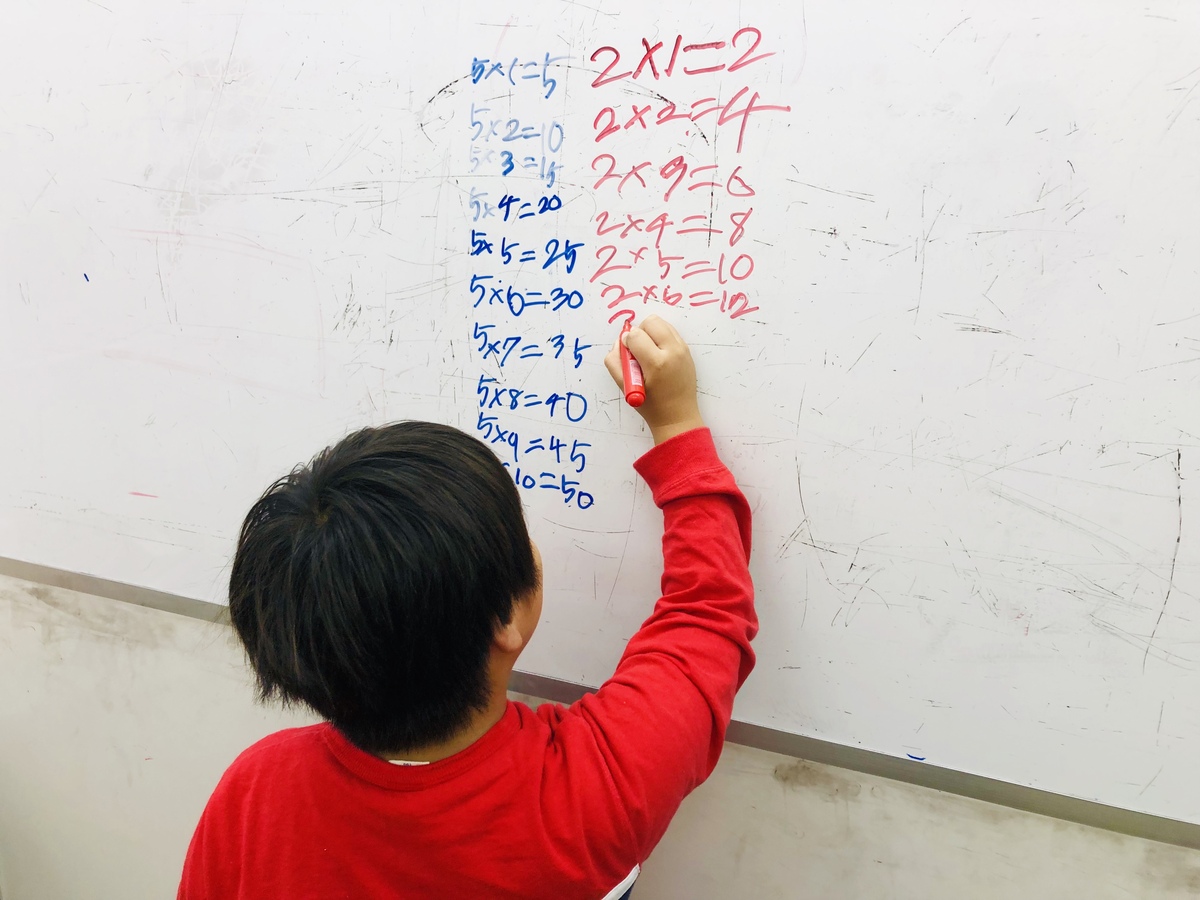 5×1=5
5×2=10
5×3=15
5×4=20
5×5=25
5×6=30
5×7=35
5×8=40
5×9=45
10=50
2×1=2
2×2=4
2×9=6
2×4=8
2×5=10
2×6=12